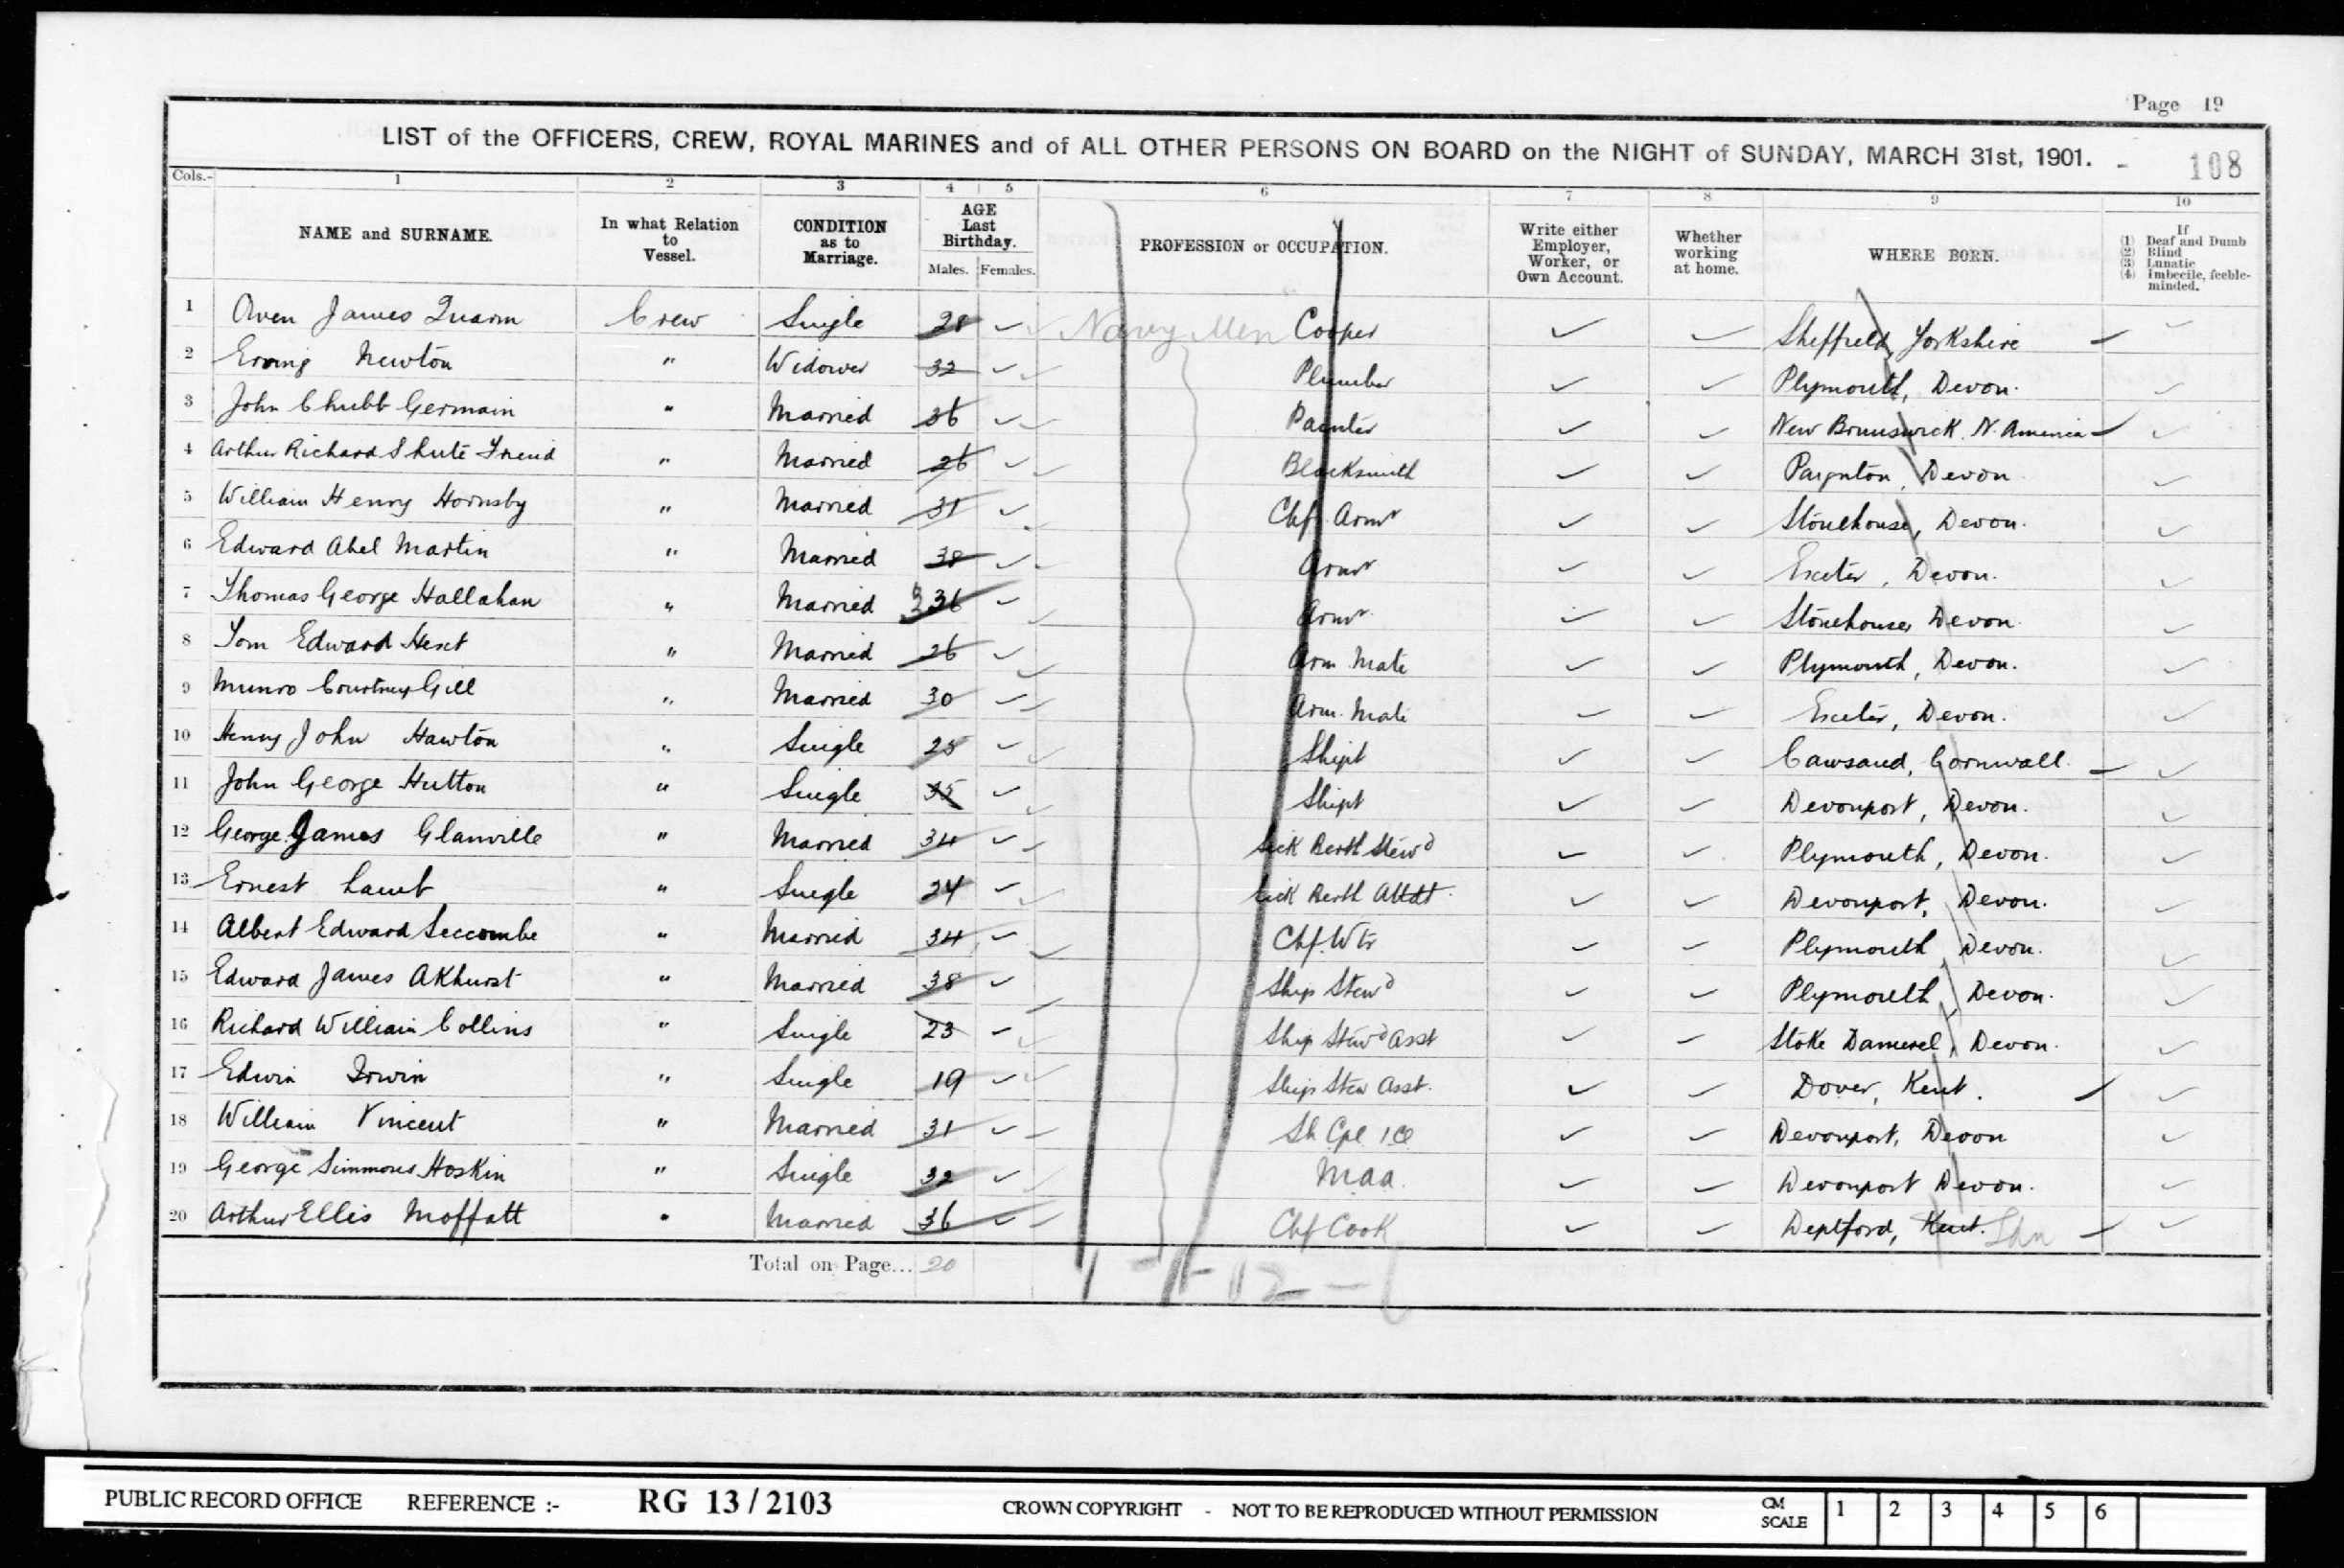 Page 19
LIST of the OFFICERS, CREW, ROYAL MARINES and of ALL OTHER PERSONS ON BOARD on the NIGHT of SUNDAY, MARCH 31st, 1901. - 108
Cols.- 1 2 3 4 5 6 7 8 9 10
NAME and SURNAME. In what Relation to Vessel. CONDITION as to Marriage. AGE Last Birthday. Males. Females. PROFESSION or OCCUPATION. Write either Employer, Worker, or Own Account. Whether working at home. WHERE BORN. If (1) Deaf and Dumb (2) Blind (3) Lunatic (4) Imbecile, feeble-minded.
1 Owen James Quarm Crew Single 28 Navy Men Cooper Sheffield, Yorkshire
2 Erving Newton " Widower 32 Plumber Plymouth, Devon.
3 John Chubb Germain " Married 36 Painter New Brunswick. N. America
4 Arthur Richard Shute Friend " Married 26 Blacksmith Paignton, Devon
5 William Henry Hornsby " Married 31 Chf. Armr Stonehouse, Devon.
6 Edward Abel Martin " Married 38 Armr Exeter, Devon.
7 Thomas George Hallahan " Married 36 Armr Stonehouse, Devon
8 Tom Edward Hext " Married 26 Arm. Mate Plymouth, Devon.
9 Munro Courtney Gill " Married 30 Arm. Mate Exeter, Devon.
10 Henry John Hawton " Single 25 Shipt Cawsand, Cornwall.
11 John George Hutton " Single 35 Shipt Devonport, Devon.
12 George James Glanville " Married 34 Sick Berth Stewd Plymouth, Devon.
13 Ernest Lamb " Single 24 Sick Berth Attdt Devonport, Devon.
14 Albert Edward Seccombe " Married 34 Chf. Wtr Plymouth, Devon.
15 Edward James Akhurst " Married 38 Ship Stewd Plymouth, Devon.
16 Richard William Collins " Single 23 Ship Stewd Asst Stoke Damerel, Devon.
17 Edwin Irwin " Single 19 Ship Stew Asst. Dover, Kent.
18 William Vincent " Married 31 Sh Cpl 1 Cl Devonport, Devon
19 George Simmons Hoskin " Single 32 Maa. Devonport Devon.
20 Arthur Ellis Moffatt " Married 36 Chf Cook Deptford, Kent. Ldn
Total on Page... 20
PUBLIC RECORD OFFICE REFERENCE :- RG 13 / 2103 CROWN COPYRIGHT - NOT TO BE REPRODUCED WITHOUT PERMISSION CM SCALE 1 2 3 4 5 6